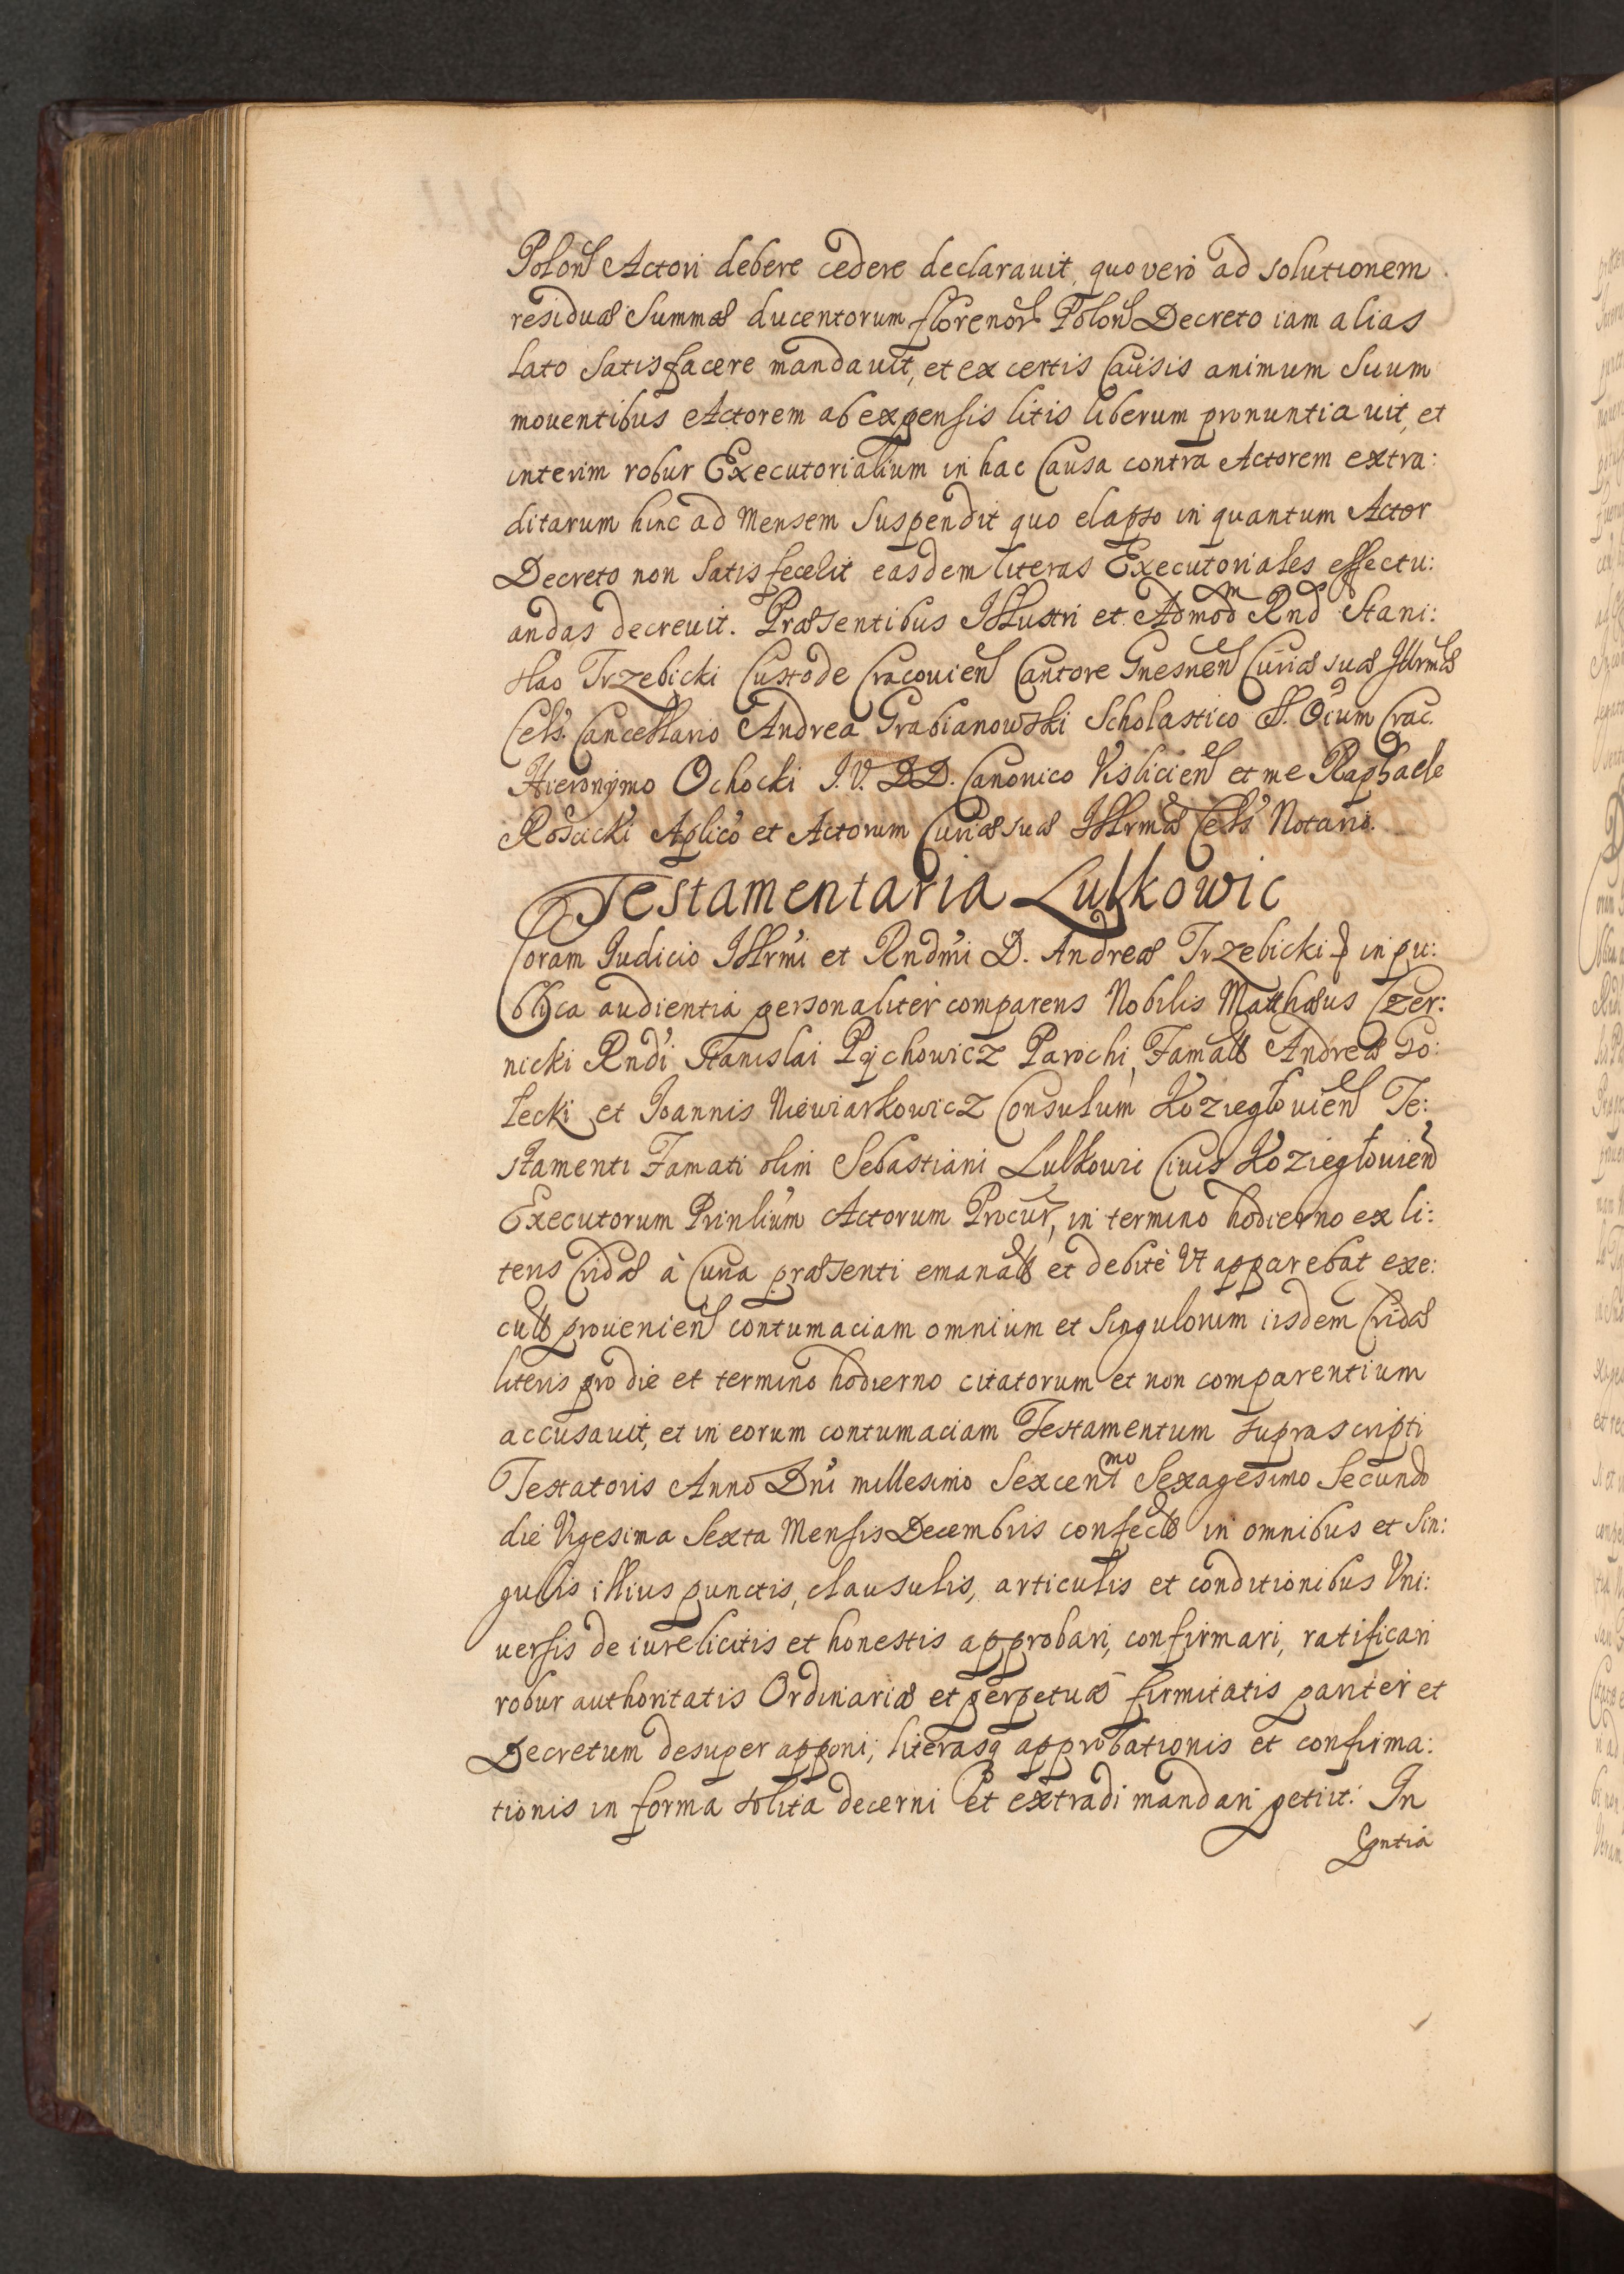 Polon Actori debere cedere declarauit, quo vero ad solutionem
residuæ Summæ ducentorum florenor Polon Decreto iam alias
lato Satisfacere mandauit, et ex certis Causis animum Suum
mouentibus Actorem ab expensis litis liberum pronuntiauit, et
interim robur Executorialium in hac Causa contra Actorem extra:
ditarum hinc ad Mensem Suspendit quo elapso in quantum Actor
Decreto non Satisfecelit easdem literas Executoriales effectu:
andas decreuit. Præsentibus Illustri et Admod Rnd Stani:
slao Trzebicki Custode Cracouien Cantore Gnesnen Curiæ suæ Illrmæ
Cels. Cancellario Andrea Grabianowski Scholastico SS. Oium Crac.
Hieronymo Ochocki I.V.DD. Canonico Visliciens et me Raphaele
Rościcki Aplico et Actorum Curiæ suæ Illrmæ Cels Notario.
Testamentaria Lulkowic
Coram Iudicio Illrmi et Rndmi D. Andreæ Trzebicki in pu:
blica audientia personaliter comparens Nobilis Matthæus Czer:
nicki Rndi Stanislai Pychowicz Parochi, Famat Andreæ Go:
lecki et Ioannis Niewiarkowicz Consulum Koziegłouien Te:
stamenti Famati olim Sebastiani Lulkowic Ciuis Koziegłouien
Executorum Prinlium Actorum Procur, in termino hodierno ex li:
teris Cridæ à Curia præsenti emanat et debitè Vt apparebat exe:
cut prouenien contumaciam omnium et Singulorum iisdem Cridæ
literis pro die et termino hodierno citatorum et non comparentium
accusauit, et in eorum contumaciam Testamentum suprascripti
Testatoris Anno Dni millesimo Sexcentmo Sexagesimo Secundo
die Vigesima Sexta Mensis Decembris confect in omnibus et Sin:
gulis illius punctis, clausulis, articulis et conditionibus Vni:
uersis de iure licitis et honestis approbari, confirmari, ratificari
robur authoritatis Ordinariæ et perpetuæ firmitatis pariter et
Decretum desuper apponi; literasq approbationis et confirma:
tionis in forma solita decerni et extradi mandari petiit. In